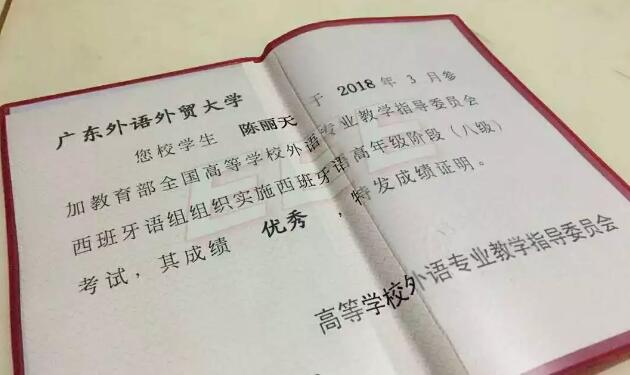 广东外语外贸大学
您校学生 陈丽天 于 2018 年 3 月参
加教育部全国高等学校外语专业教学指导委员会
西班牙语组组织实施西班牙语高年级阶段（八级）
考试，其成绩 优秀 ，特发成绩证明。
高等学校外语专业教学指导委员会